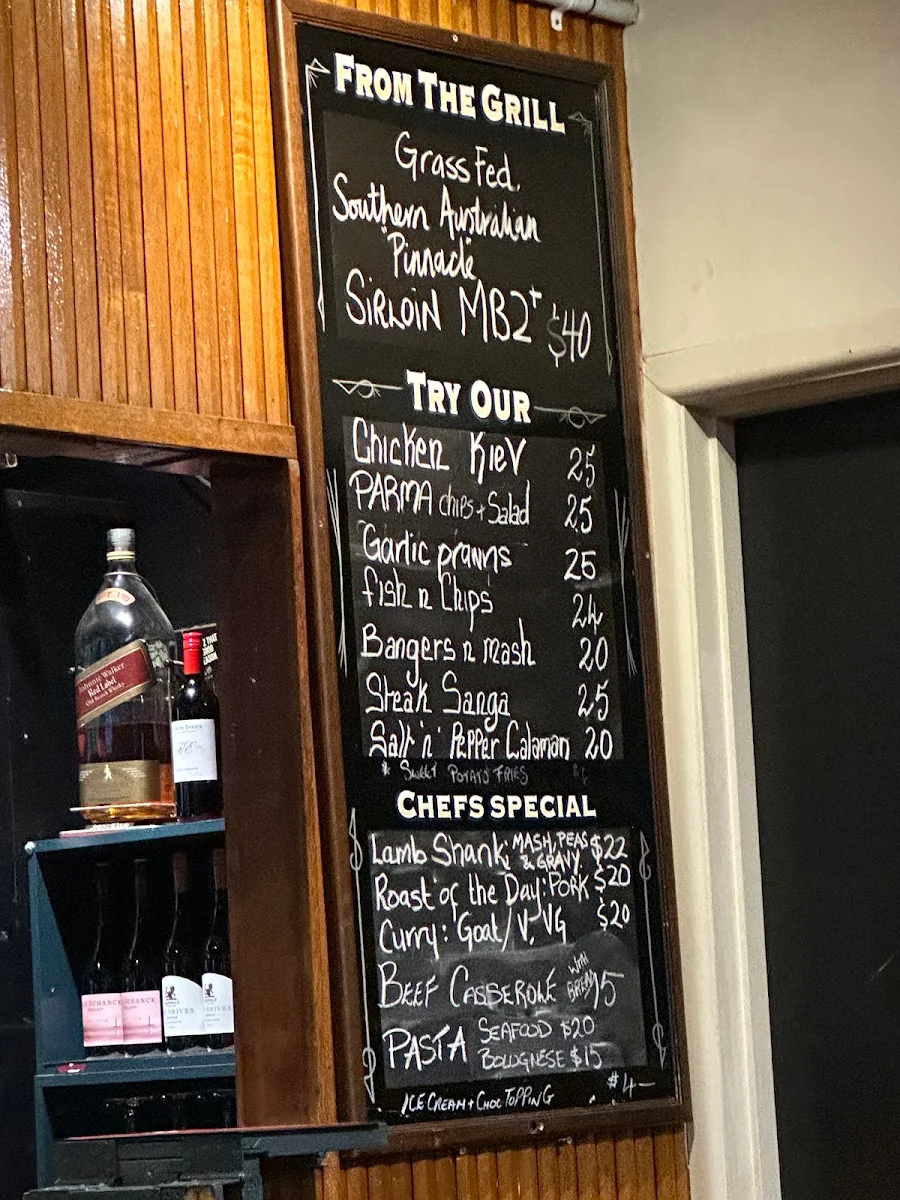 FROM THE GRILL
Grass Fed.
Southern Australian
"Pinnacle"
SIRLOIN MB2+ $40
TRY OUR
Chicken Kiev 25
PARMA chips + Salad 25
Garlic prawns 25
fish n Chips 24
Bangers n mash 20
Steak Sanga 25
Salt 'n' Pepper Calamari 20
* SWEET POTATO FRIES
CHEFS SPECIAL
Lamb Shank: MASH, PEAS & GRAVY $22
Roast of the Day: PORK $20
Curry: Goat/V, VG $20
BEEF CASSEROLE WITH BREAD 15
PASTA SEAFOOD $20
BOLOGNESE $15
ICE CREAM + CHOC TOPPING $4-
Johnnie Walker
Red Label
Old Scotch Whisky